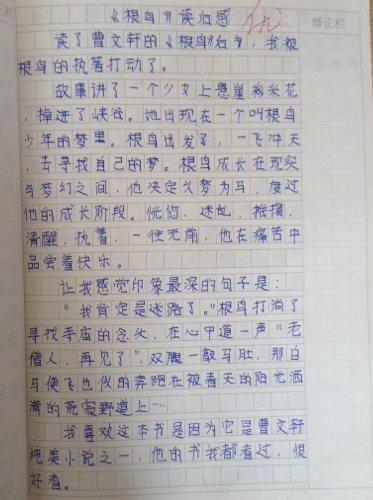 《根鸟》读后感
优
修正栏
读了曹文轩的《根鸟》后，我被
根鸟的执著打动了。
故事讲了一个少女上悬崖采花
，掉进了峡谷。她出现在一个叫根鸟
少年的梦里。根鸟出发了，一飞冲天
，去寻找自己的梦。根鸟成长在现实
与梦幻之间，他决定以梦为马，度过
他的成长阶段。恍惚、迷乱、摇摆、
清醒、执着、一往无前，他在痛苦中
品尝着快乐。
让我感觉印象最深的句子是：
“我肯定是迷路了。”根鸟打消了
寻找寺庙的念头，在心中道一声“老
僧人，再见了”，双腿一敲马肚，那白
马便飞也似的奔跑在被春天的阳光洒
满的荒寂野道上…
我喜欢这本书是因为它是曹文轩
纯美小说之一，他的书我都看过，很
好看。